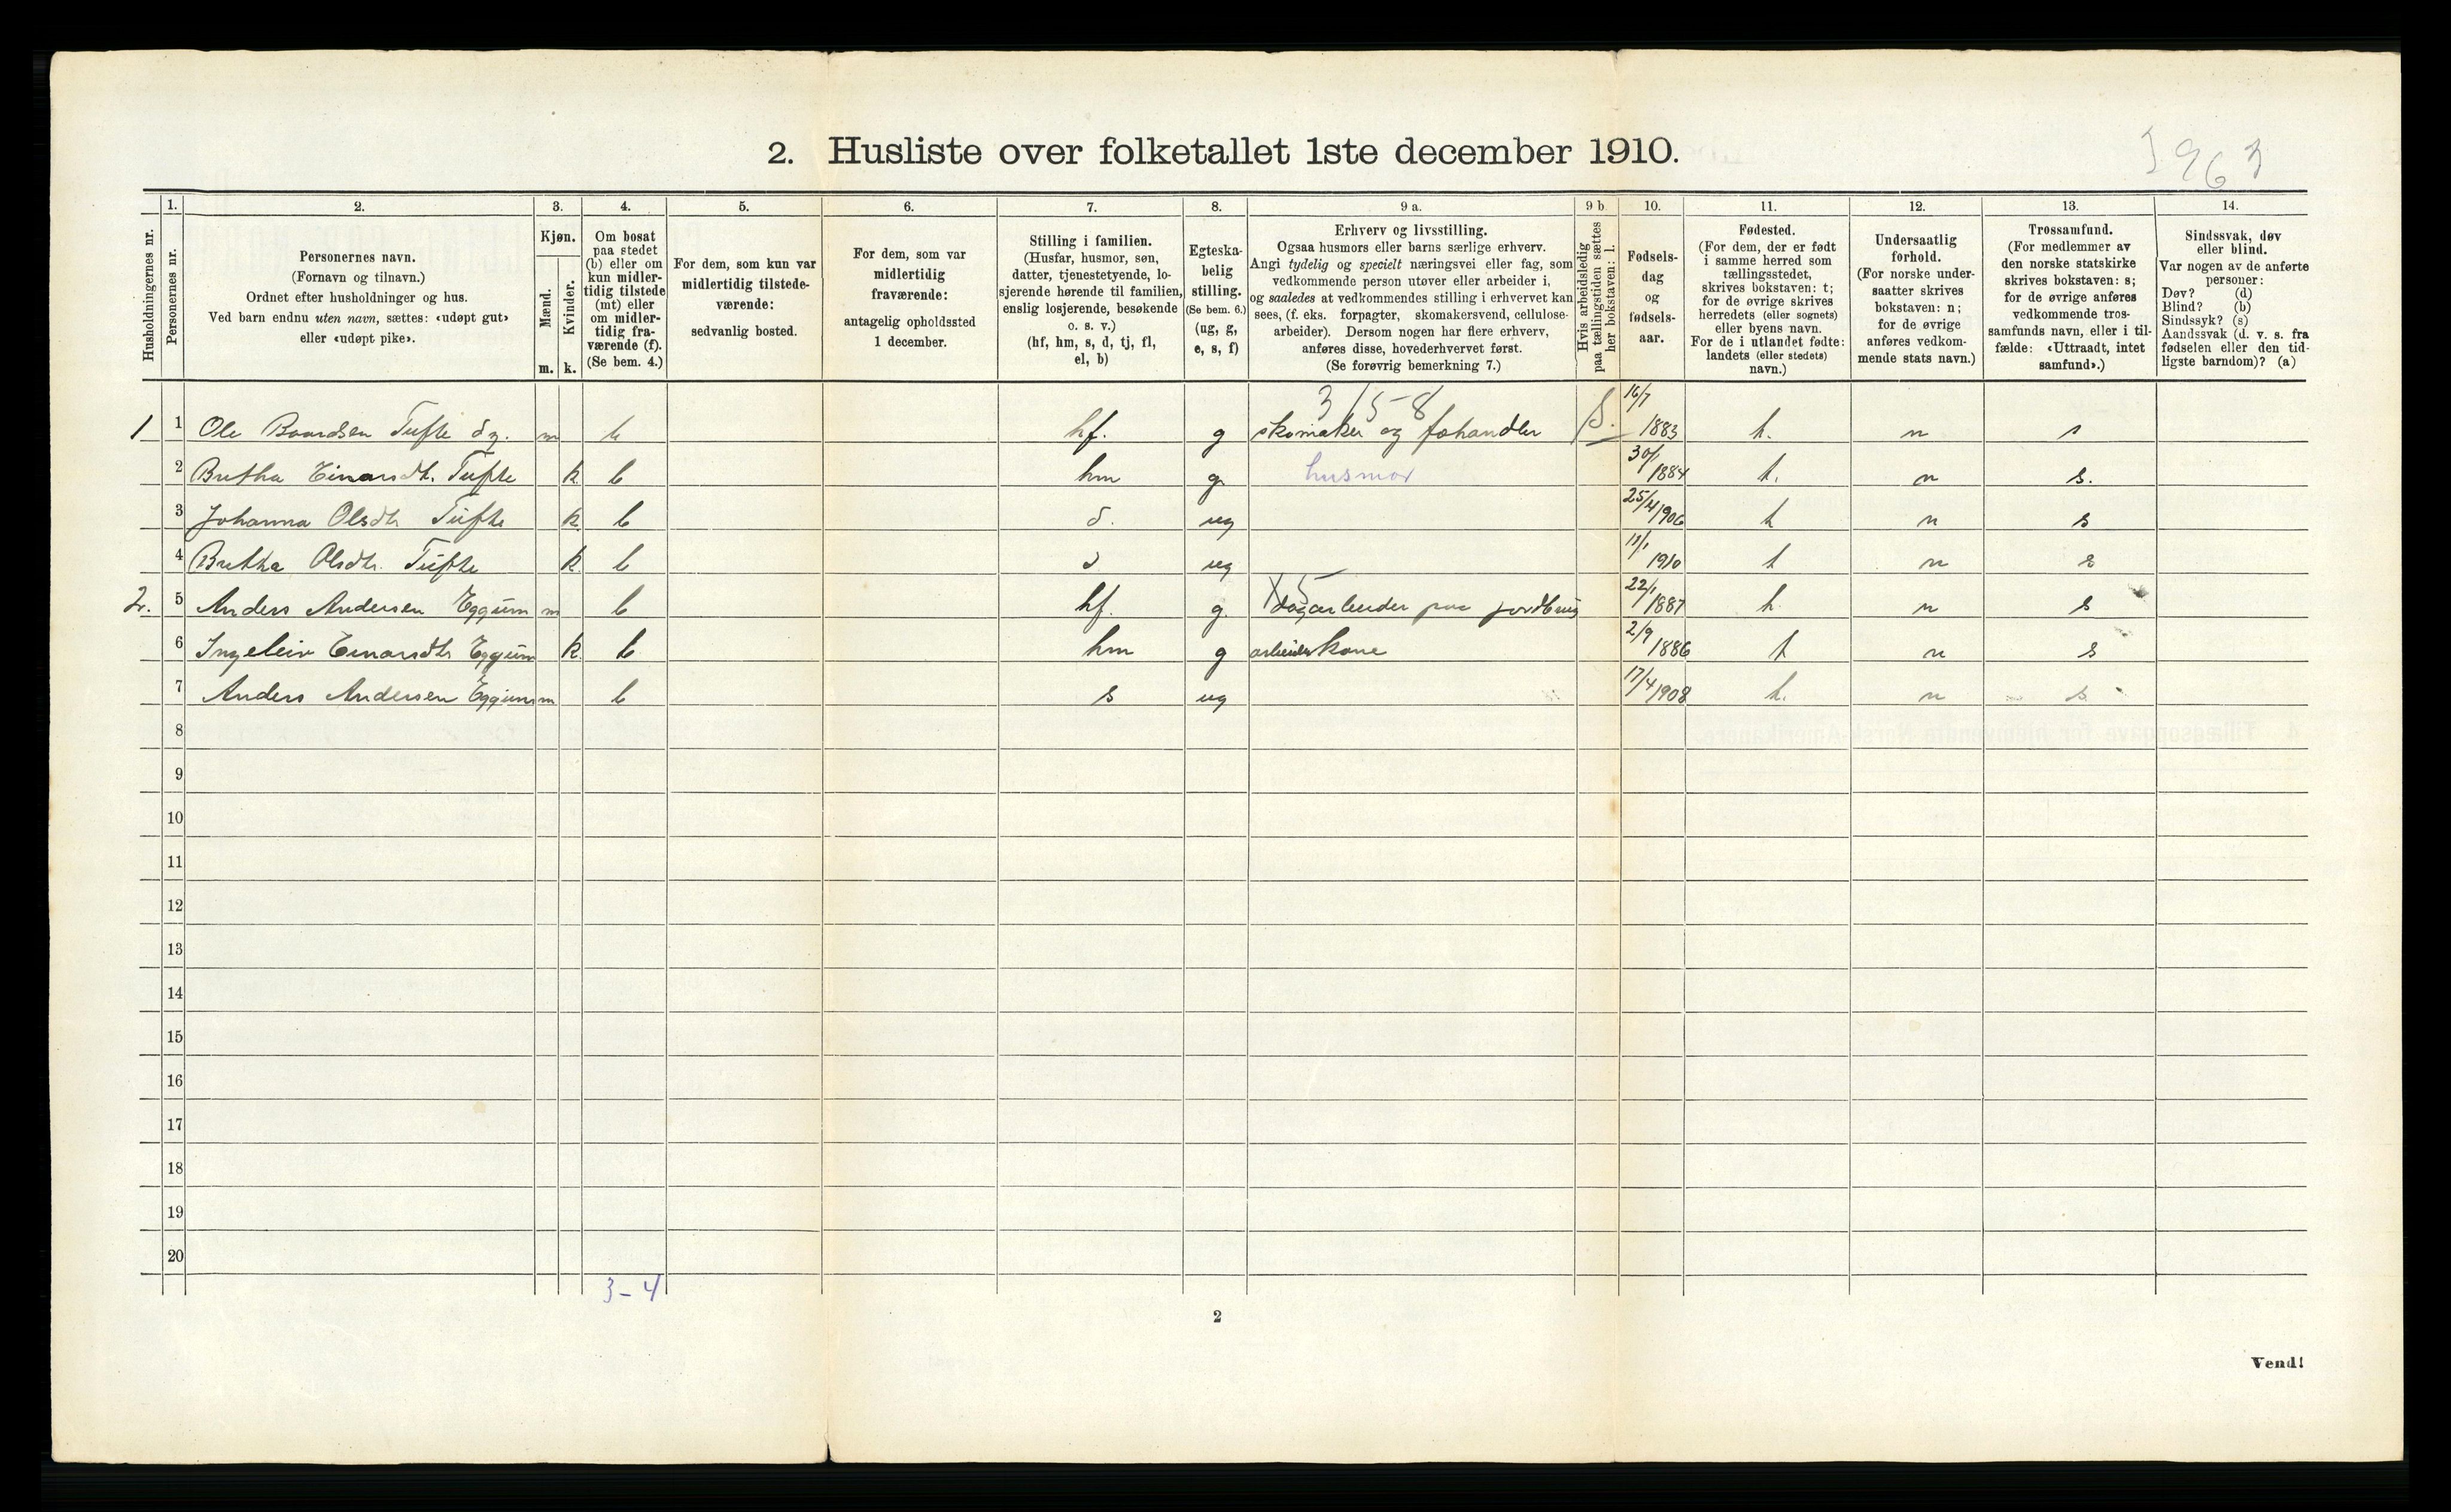 2. Husliste over folketallet 1ste december 1910.
1. 2. 3. 4. 5. 6. 7. 8. 9 a. 9 b. 10. 11. 12. 13. 14.
Husholdningernes nr.
Personernes nr.
Personernes navn.
(Fornavn og tilnavn.)
Ordnet efter husholdninger og hus.
Ved barn endnu uten navn, sættes: «udøpt gut»
eller «udøpt pike».
Kjøn.
Mænd.
Kvinder.
m. k.
Om bosat
paa stedet
(b) eller om
kun midler-
tidig tilstede
(mt) eller
om midler-
tidig fra-
værende (f).
(Se bem. 4.)
For dem, som kun var
midlertidig tilstede-
værende:
sedvanlig bosted.
For dem, som var
midlertidig
fraværende:
antagelig opholdssted
1 december.
Stilling i familien.
(Husfar, husmor, søn,
datter, tjenestetyende, lo-
sjerende hørende til familien,
enslig losjerende, besøkende
o. s. v.)
(hf, hm, s, d, tj, fl,
el, b)
Egteska-
belig
stilling.
(Se bem. 6.)
(ug, g,
e, s, f)
Erhverv og livsstilling.
Ogsaa husmors eller barns særlige erhverv.
Angi tydelig og specielt næringsvei eller fag, som
vedkommende person utøver eller arbeider i,
og saaledes at vedkommendes stilling i erhvervet kan
sees, (f. eks. forpagter, skomakersvend, cellulose-
arbeider). Dersom nogen har flere erhverv,
anføres disse, hovederhvervet først.
(Se forøvrig bemerkning 7.)
Hvis arbeidsledig
paa tællingstiden sættes
her bokstaven: l.
Fødsels-
dag
og
fødsels-
aar.
Fødested.
(For dem, der er født
i samme herred som
tællingsstedet,
skrives bokstaven: t;
for de øvrige skrives
herredets (eller sognets)
eller byens navn.
For de i utlandet fødte:
landets (eller stedets)
navn.)
Undersaatlig
forhold.
(For norske under-
saatter skrives
bokstaven: n;
for de øvrige
anføres vedkom-
mende stats navn.)
Trossamfund.
(For medlemmer av
den norske statskirke
skrives bokstaven: s;
for de øvrige anføres
vedkommende tros-
samfunds navn, eller i til-
fælde: «Uttraadt, intet
samfund».)
Sindssvak, døv
eller blind.
Var nogen av de anførte
personer:
Døv? (d)
Blind? (b)
Sindssyk? (s)
Aandssvak (d. v. s. fra
fødselen eller den tid-
ligste barndom)? (a)
3 15-8
1 1 Ole Baardsen Tufte m b hf. g skomaker og fæhandler S. 16/7 1883 t. n s
2 Bretha Einarsdt. Tufte k b hm g husmor 30/1 1884 t. n s.
3 Johanna Olsdtr Tufte k b d. ug 25/4 1906 t n s
4 Bretha Olsdtr. Tufte k. b d ug 11/1 1910 t n s
2. 5 Anders Andersen Eggum m b hf. g. dagarbeider paa jordbrug 22/1 1887 t. n s
6 Ingeleiv Einarsdtr Eggum k. b hm g arbeiderkone 2/9 1886 t n s
7 Anders Andersen Eggum m b s ug 17/4 1908 t. n s
8
9
10
11
12
13
14
15
16
17
18
19
20
3-4
2
Vend!